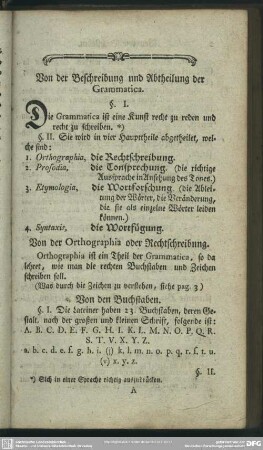 Von der Beschreibung und Abtheilung der
Grammatica.
§. I.
Die Grammatica ist eine Kunst recht zu reden und
recht zu schreiben. *)
§. II. Sie wird in vier Haupttheile abgetheilet, wel-
che sind:
1. Orthographia, die Rechtschreibung.
2. Prosodia, die Tonsprechung. (die richtige
Aussprache in Ansehung des Tones.)
3. Etymologia, die Wortforschung. (die Ablei-
tung der Wörter, die Veränderung,
die sie als einzelne Wörter leiden
können.)
4. Syntaxis, die Wortfügung.
Von der Orthographia oder Rechtschreibung.
Orthographia ist ein Theil der Grammatica, so da
lehret, wie man die rechten Buchstaben und Zeichen
schreiben soll.
(Was durch die Zeichen zu verstehen, siehe pag. 3)
Von den Buchstaben.
§. I. Die Lateiner haben 23. Buchstaben, deren Ge-
stalt, nach der großen und kleinen Schrift, folgende ist:
A. B. C. D. E. F. G. H. I. K. L. M. N. O. P. Q. R.
S. T. V. X. Y. Z.
a. b. c. d. e. f. g. h. i. (j) k. l. m. n. o. p. q. r. ſ. t. u.
(v) x. y. z.
§. II.
*) Sich in einer Sprache richtig auszudrücken.
A